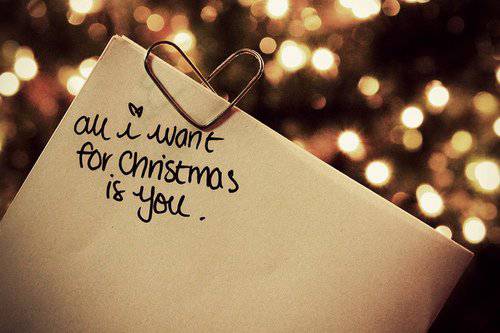 all i want
for christmas
is you.